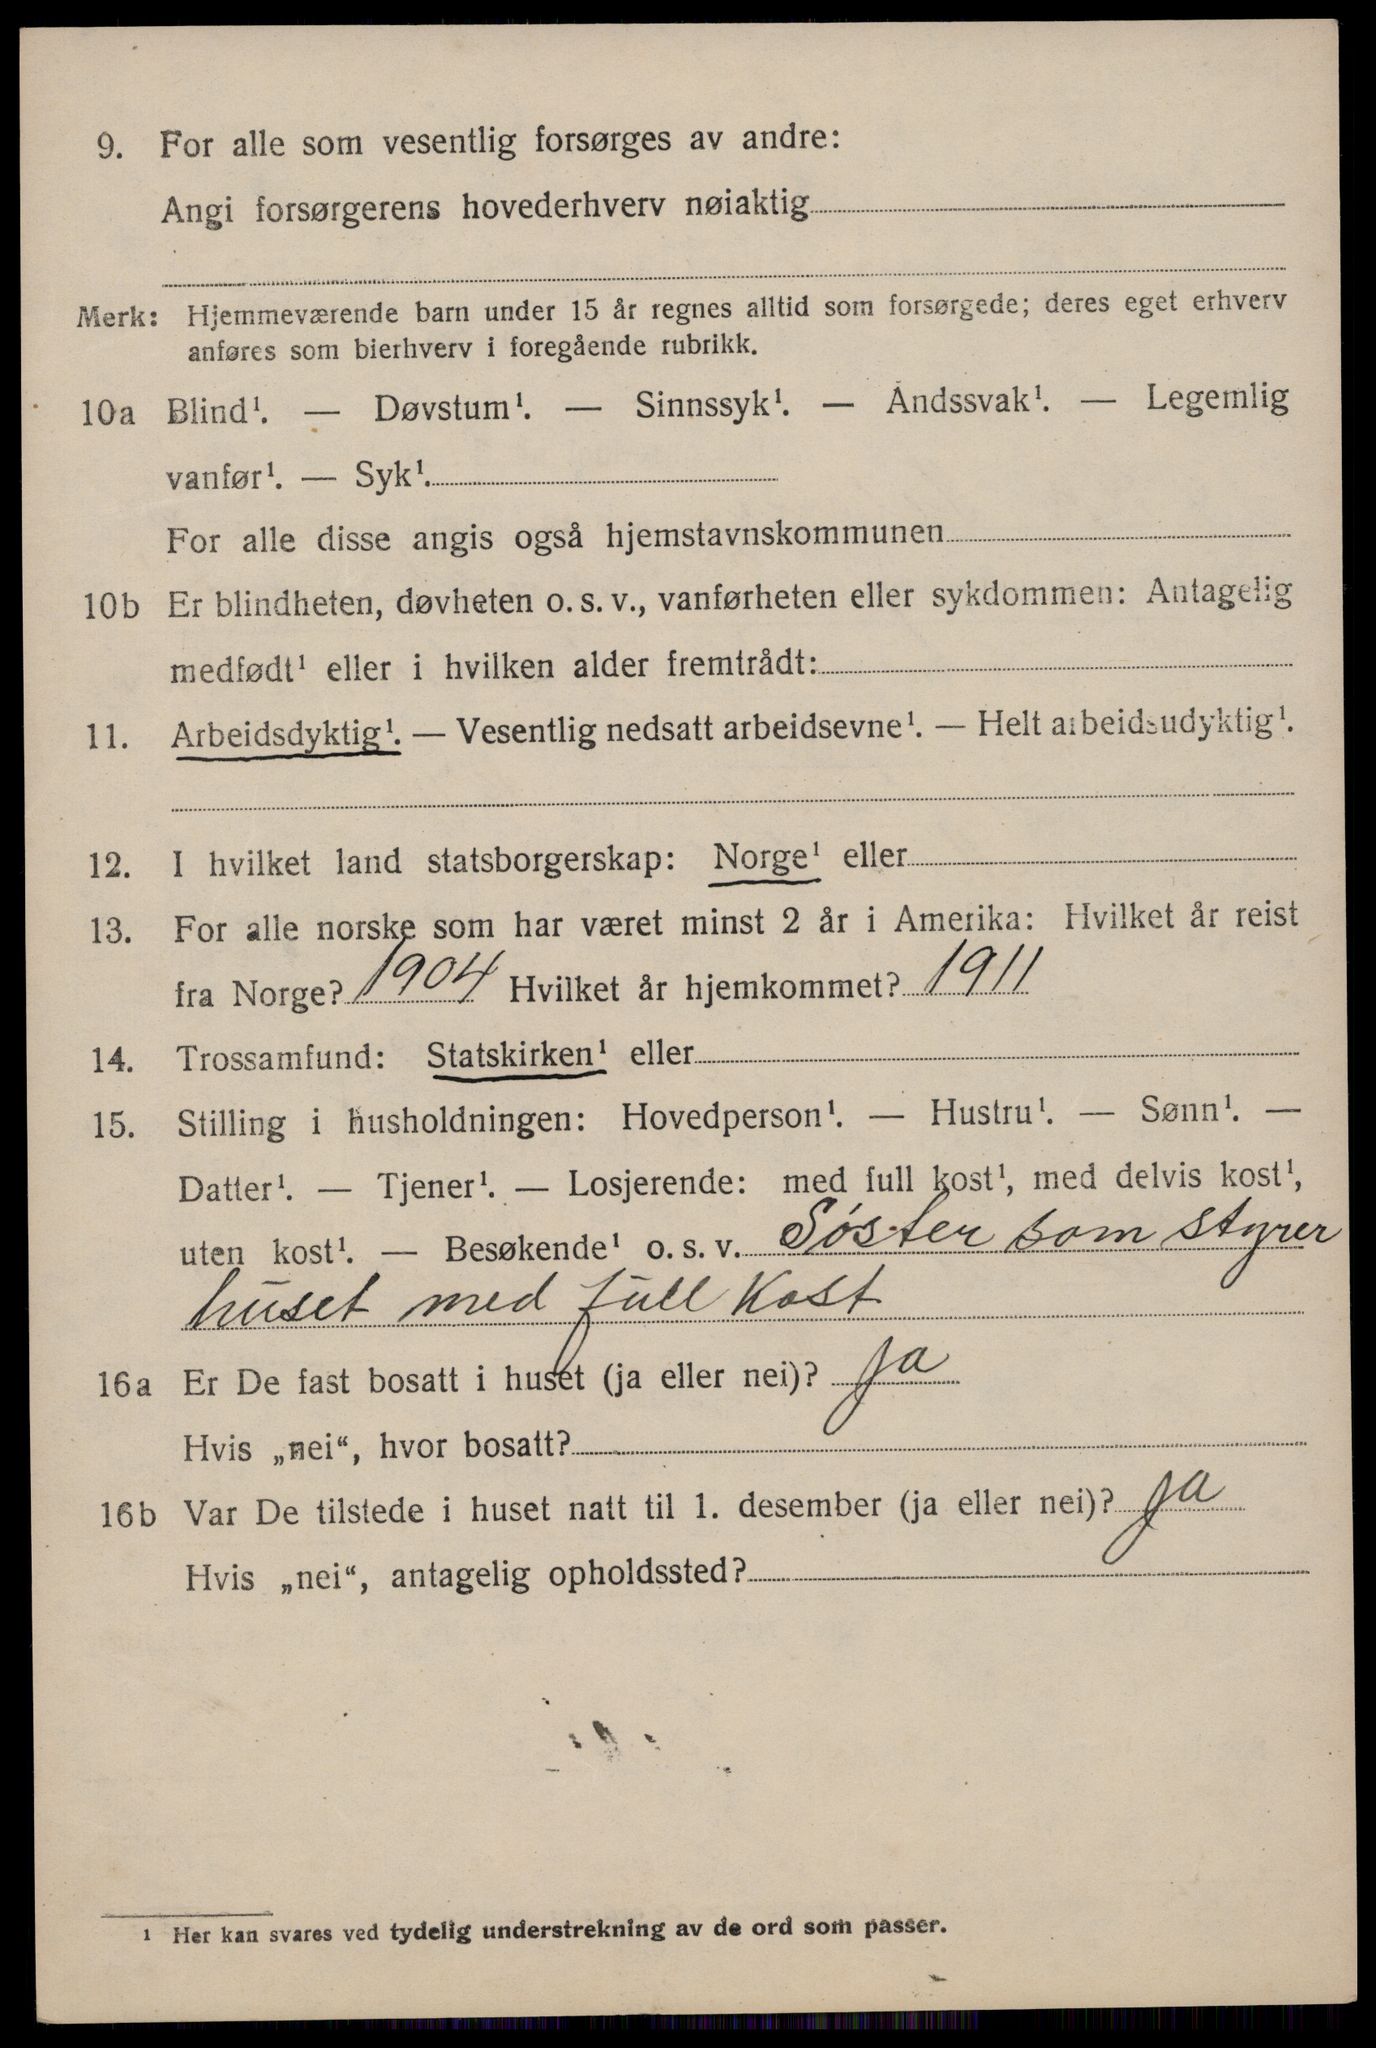 9. For alle som vesentlig forsørges av andre:
Angi forsørgerens hovederhverv nøiaktig
Merk: Hjemmeværende barn under 15 år regnes alltid som forsørgede; deres eget erhverv
anføres som bierhverv i foregående rubrikk.
10a Blind¹. — Døvstum¹. — Sinnssyk¹. — Åndssvak¹. — Legemlig
vanfør¹. — Syk¹.
For alle disse angis også hjemstavnskommunen
10b Er blindheten, døvheten o. s. v., vanførheten eller sykdommen: Antagelig
medfødt¹ eller i hvilken alder fremtrådt:
11. Arbeidsdyktig¹. — Vesentlig nedsatt arbeidsevne¹. — Helt arbeidsudyktig¹.
12. I hvilket land statsborgerskap: Norge¹ eller
13. For alle norske som har været minst 2 år i Amerika: Hvilket år reist
fra Norge? 1904 Hvilket år hjemkommet? 1911
14. Trossamfund: Statskirken¹ eller
15. Stilling i husholdningen: Hovedperson¹. — Hustru¹. — Sønn¹. —
Datter¹. — Tjener¹. — Losjerende: med full kost¹, med delvis kost¹,
uten kost¹. — Besøkende¹ o. s. v. Søster som styrer
huset med full kost
16a Er De fast bosatt i huset (ja eller nei)? Ja
Hvis „nei“, hvor bosatt?
16b Var De tilstede i huset natt til 1. desember (ja eller nei)? Ja
Hvis „nei“, antagelig opholdssted?
¹ Her kan svares ved tydelig understrekning av de ord som passer.